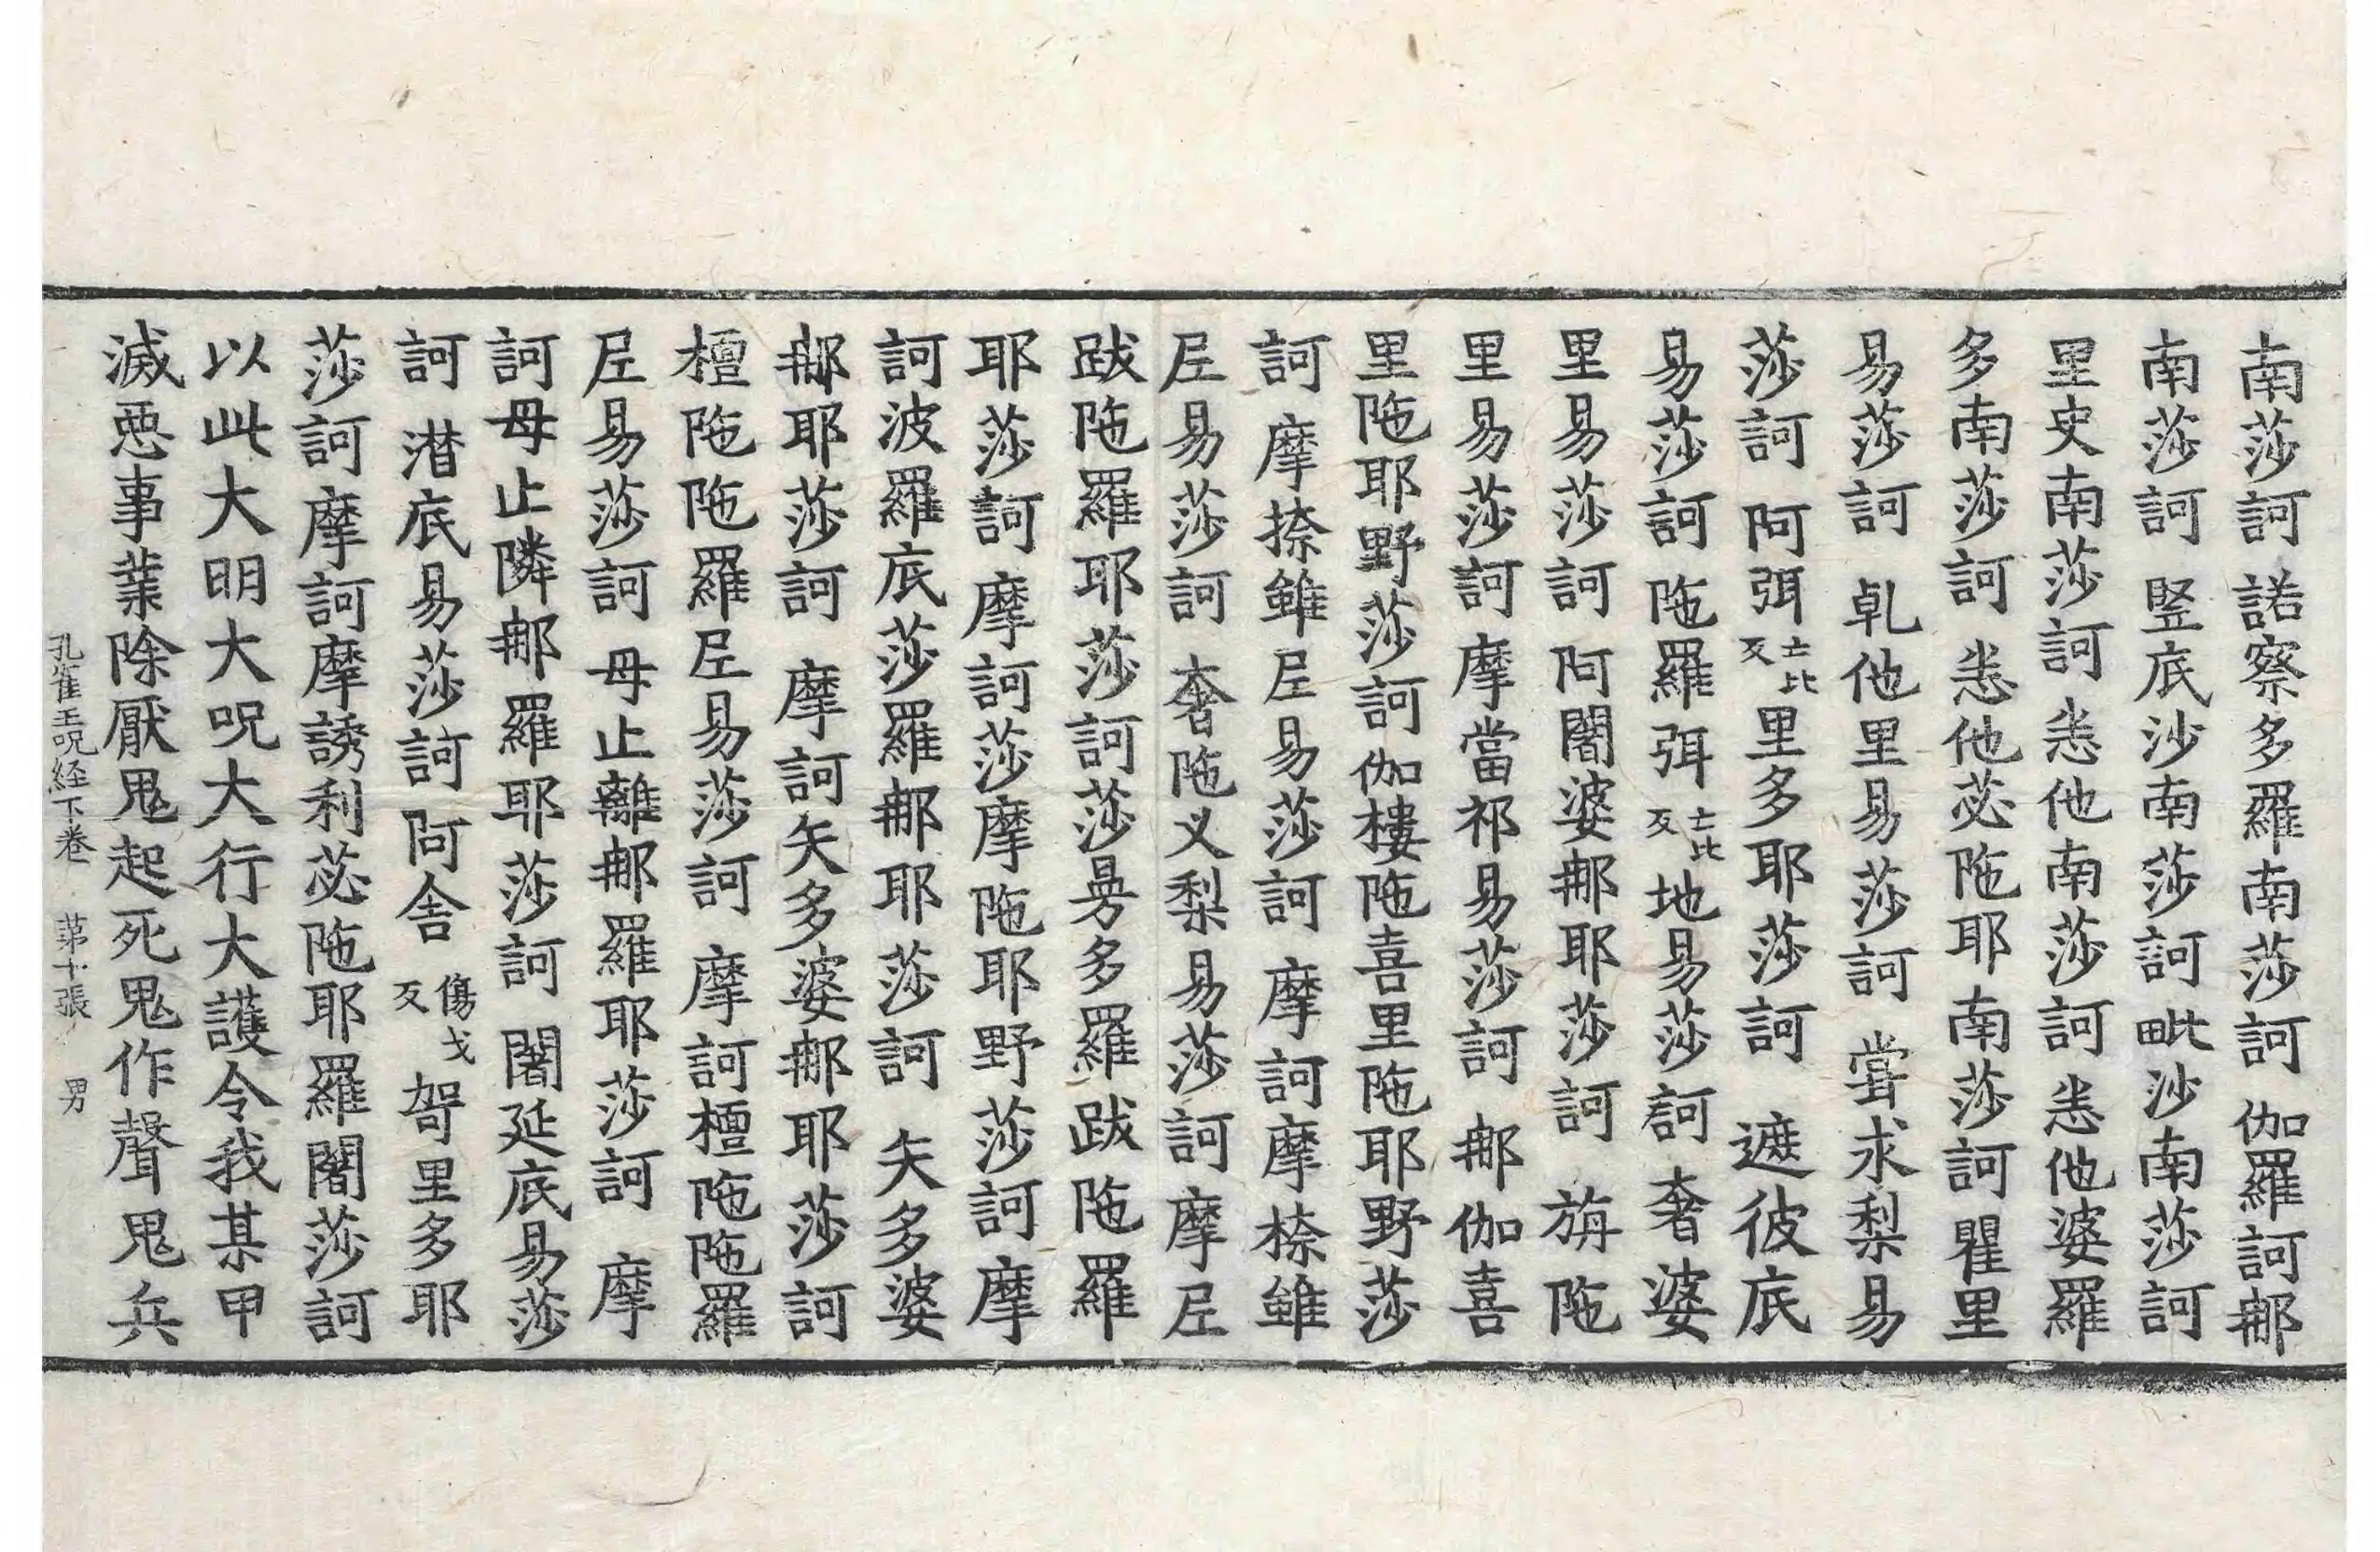 南莎訶 諾察多羅南莎訶 伽羅訶𨚗
南莎訶 竪底沙南莎訶毗沙南莎訶
里史南莎訶 恙他南莎訶恙他婆羅
多南莎訶 恙他苾陁耶南莎訶瞿里
易莎訶 乹他里易莎訶 甞求梨易
莎訶 阿弭亡比反里多耶莎訶 遮彼底
易莎訶 陁羅弭亡比反地易莎訶 奢婆
里易莎訶 阿闥婆𨚗耶莎訶 旃陁
里易莎訶 摩當祁易莎訶 𨚗伽喜
里陁耶野莎訶伽樓陁喜里陁耶野莎
訶 摩捺雖𡰱易莎訶 摩訶摩捺雖
𡰱易莎訶 奢陁义梨易莎訶摩𡰱
跋陁羅耶莎訶莎昜多羅跋陁羅
耶莎訶摩訶莎摩陁耶野莎訶摩
訶波羅底莎羅𨚗耶莎訶 矢多婆
𨚗耶莎訶 摩訶矢多婆𨚗耶莎訶
檀陁陁羅𡰱易莎訶 摩訶檀陁陁羅
𡰱易莎訶 母止離𨚗羅耶莎訶 摩
訶母止隣𨚗羅耶莎訶 闍延底易莎
訶 潜底易莎訶 阿舎傷戈反哿里多耶
莎訶摩訶摩誘利苾陁耶羅闍莎訶
以此大明大呪大行大護令我某甲
滅惡事業除厭鬼起死鬼作聲鬼兵
孔雀王呪経下巻 苐十張 男